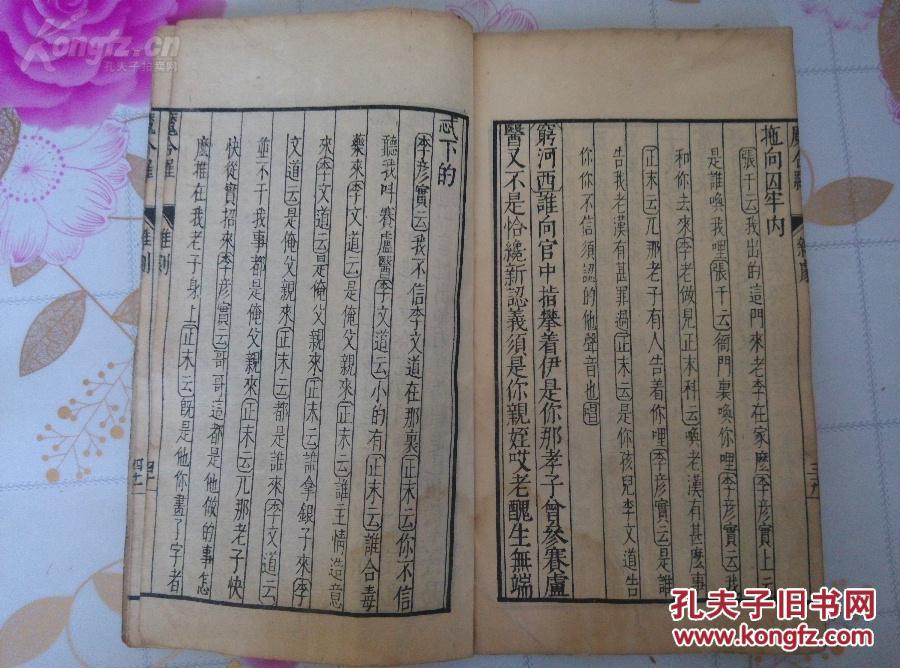 拖向囚牢內
張千云我出的這門來老李在家麽李彥實上云
是誰喚我哩張千云衙門裏喚你哩李彥實云我
和你去來李老做見正末科云喚老漢有甚麽事
正末云兀那老子有人告着你哩李彥實云是誰
告我老漢有甚罪過正末云是你孩兒李文道告
你你不信須認的他聲音也唱
窮河西誰向官中指攀着伊是你那孝子曾參賽盧
醫又不是恰纔新認義須是你親姪哎老醜生無端
忒下的
李彥實云我不信李文道在那裏正末云你不信
聽我叫賽盧醫李文道云小的有正末云誰合毒
藥來李文道云是俺父親來正末云誰主情造意
來李文道云是俺父親來正末云誰拿銀子來李
文道云是俺父親來正末云都是誰來李文道云
並不干我事都是俺父親來正末云兀那老子快
快從實招來李彥實云哥哥這都是他做的事怎
麽推在我老子身上正末云旣是他你畫了字者
魔合羅
Kongfz.cn
孔夫子拍卖网
孔夫子旧书网
www.kongfz.com